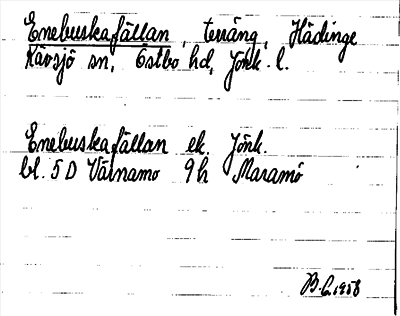 Enebuskafällan, terräng, Hädinge
Kävsjö sn, Östbo hd, Jönk. l.
Enebuskafällan ek. Jönk.
bl. 5 D Värnamo 9h Maramö
B.C. 1958